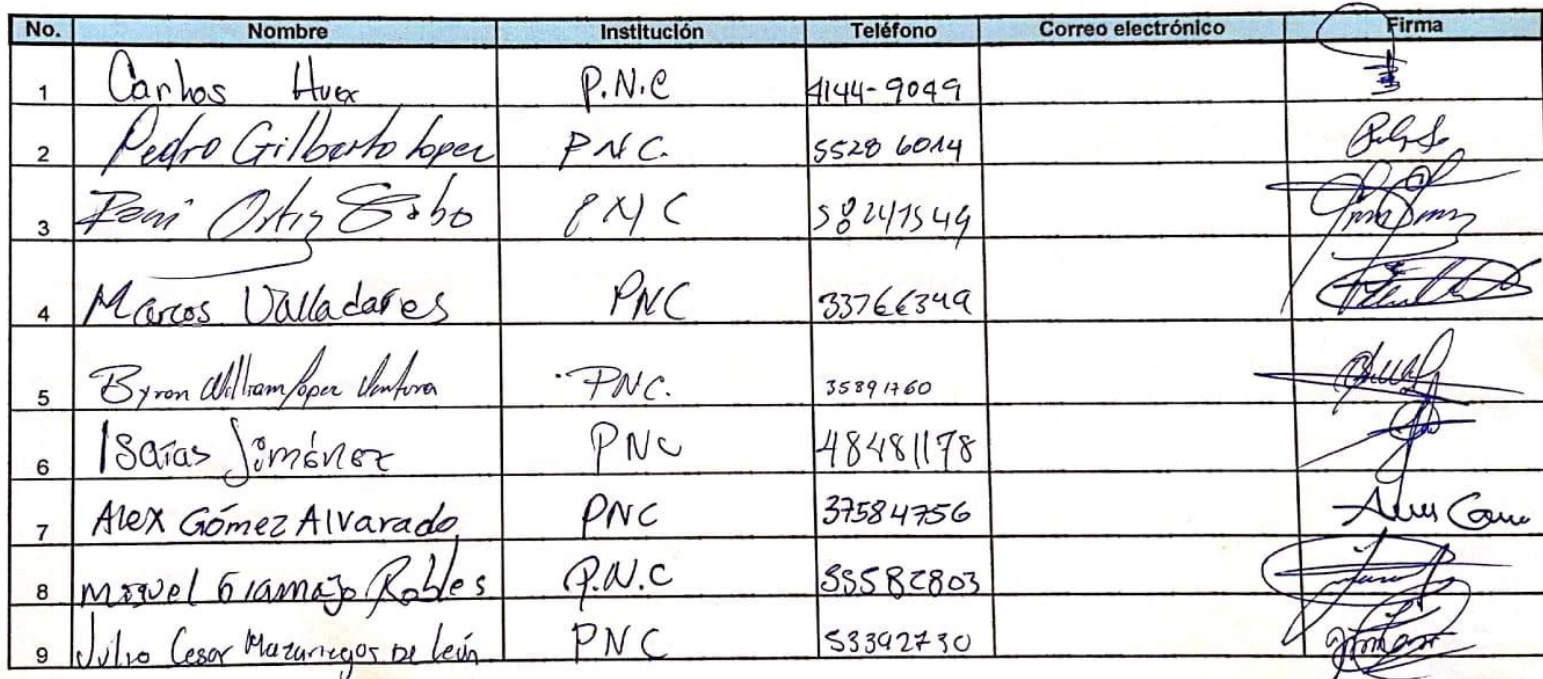 No. Nombre Institución Teléfono Correo electrónico Firma
1 Carlos Huex P.N.C 4144-9049
2 Pedro Gilberto Lopez PNC. 5528 6014
3 Ortiz PNC
4 Marcos Valladares PNC 33766349
5 Byron William Lopez Ventura PNC. 35891760
6 Isaías Jiménez PNC 48481178
7 Alex Gómez Alvarado PNC 37584756
8 Miguel Gramajo Robles P.N.C 55582803
9 Julio Cesar Mazariegos De León PNC 53392730